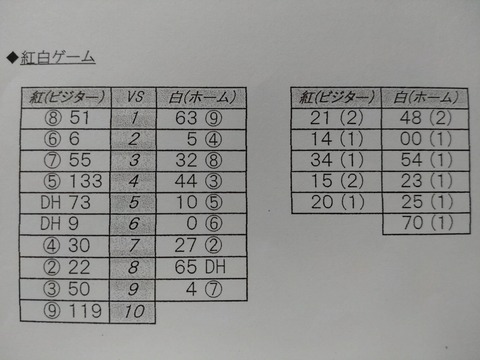 ◆紅白ゲーム
紅(ビジター) VS 白(ホーム)
⑧ 51 1 63 ⑨
⑥ 6 2 5 ④
⑦ 55 3 32 ⑧
⑤ 133 4 44 ③
DH 73 5 10 ⑤
DH 9 6 0 ⑥
④ 30 7 27 ②
② 22 8 65 DH
③ 50 9 4 ⑦
⑨ 119 10
紅(ビジター) 白(ホーム)
21 (2) 48 (2)
14 (1) 00 (1)
34 (1) 54 (1)
15 (2) 23 (1)
20 (1) 25 (1)
70 (1)